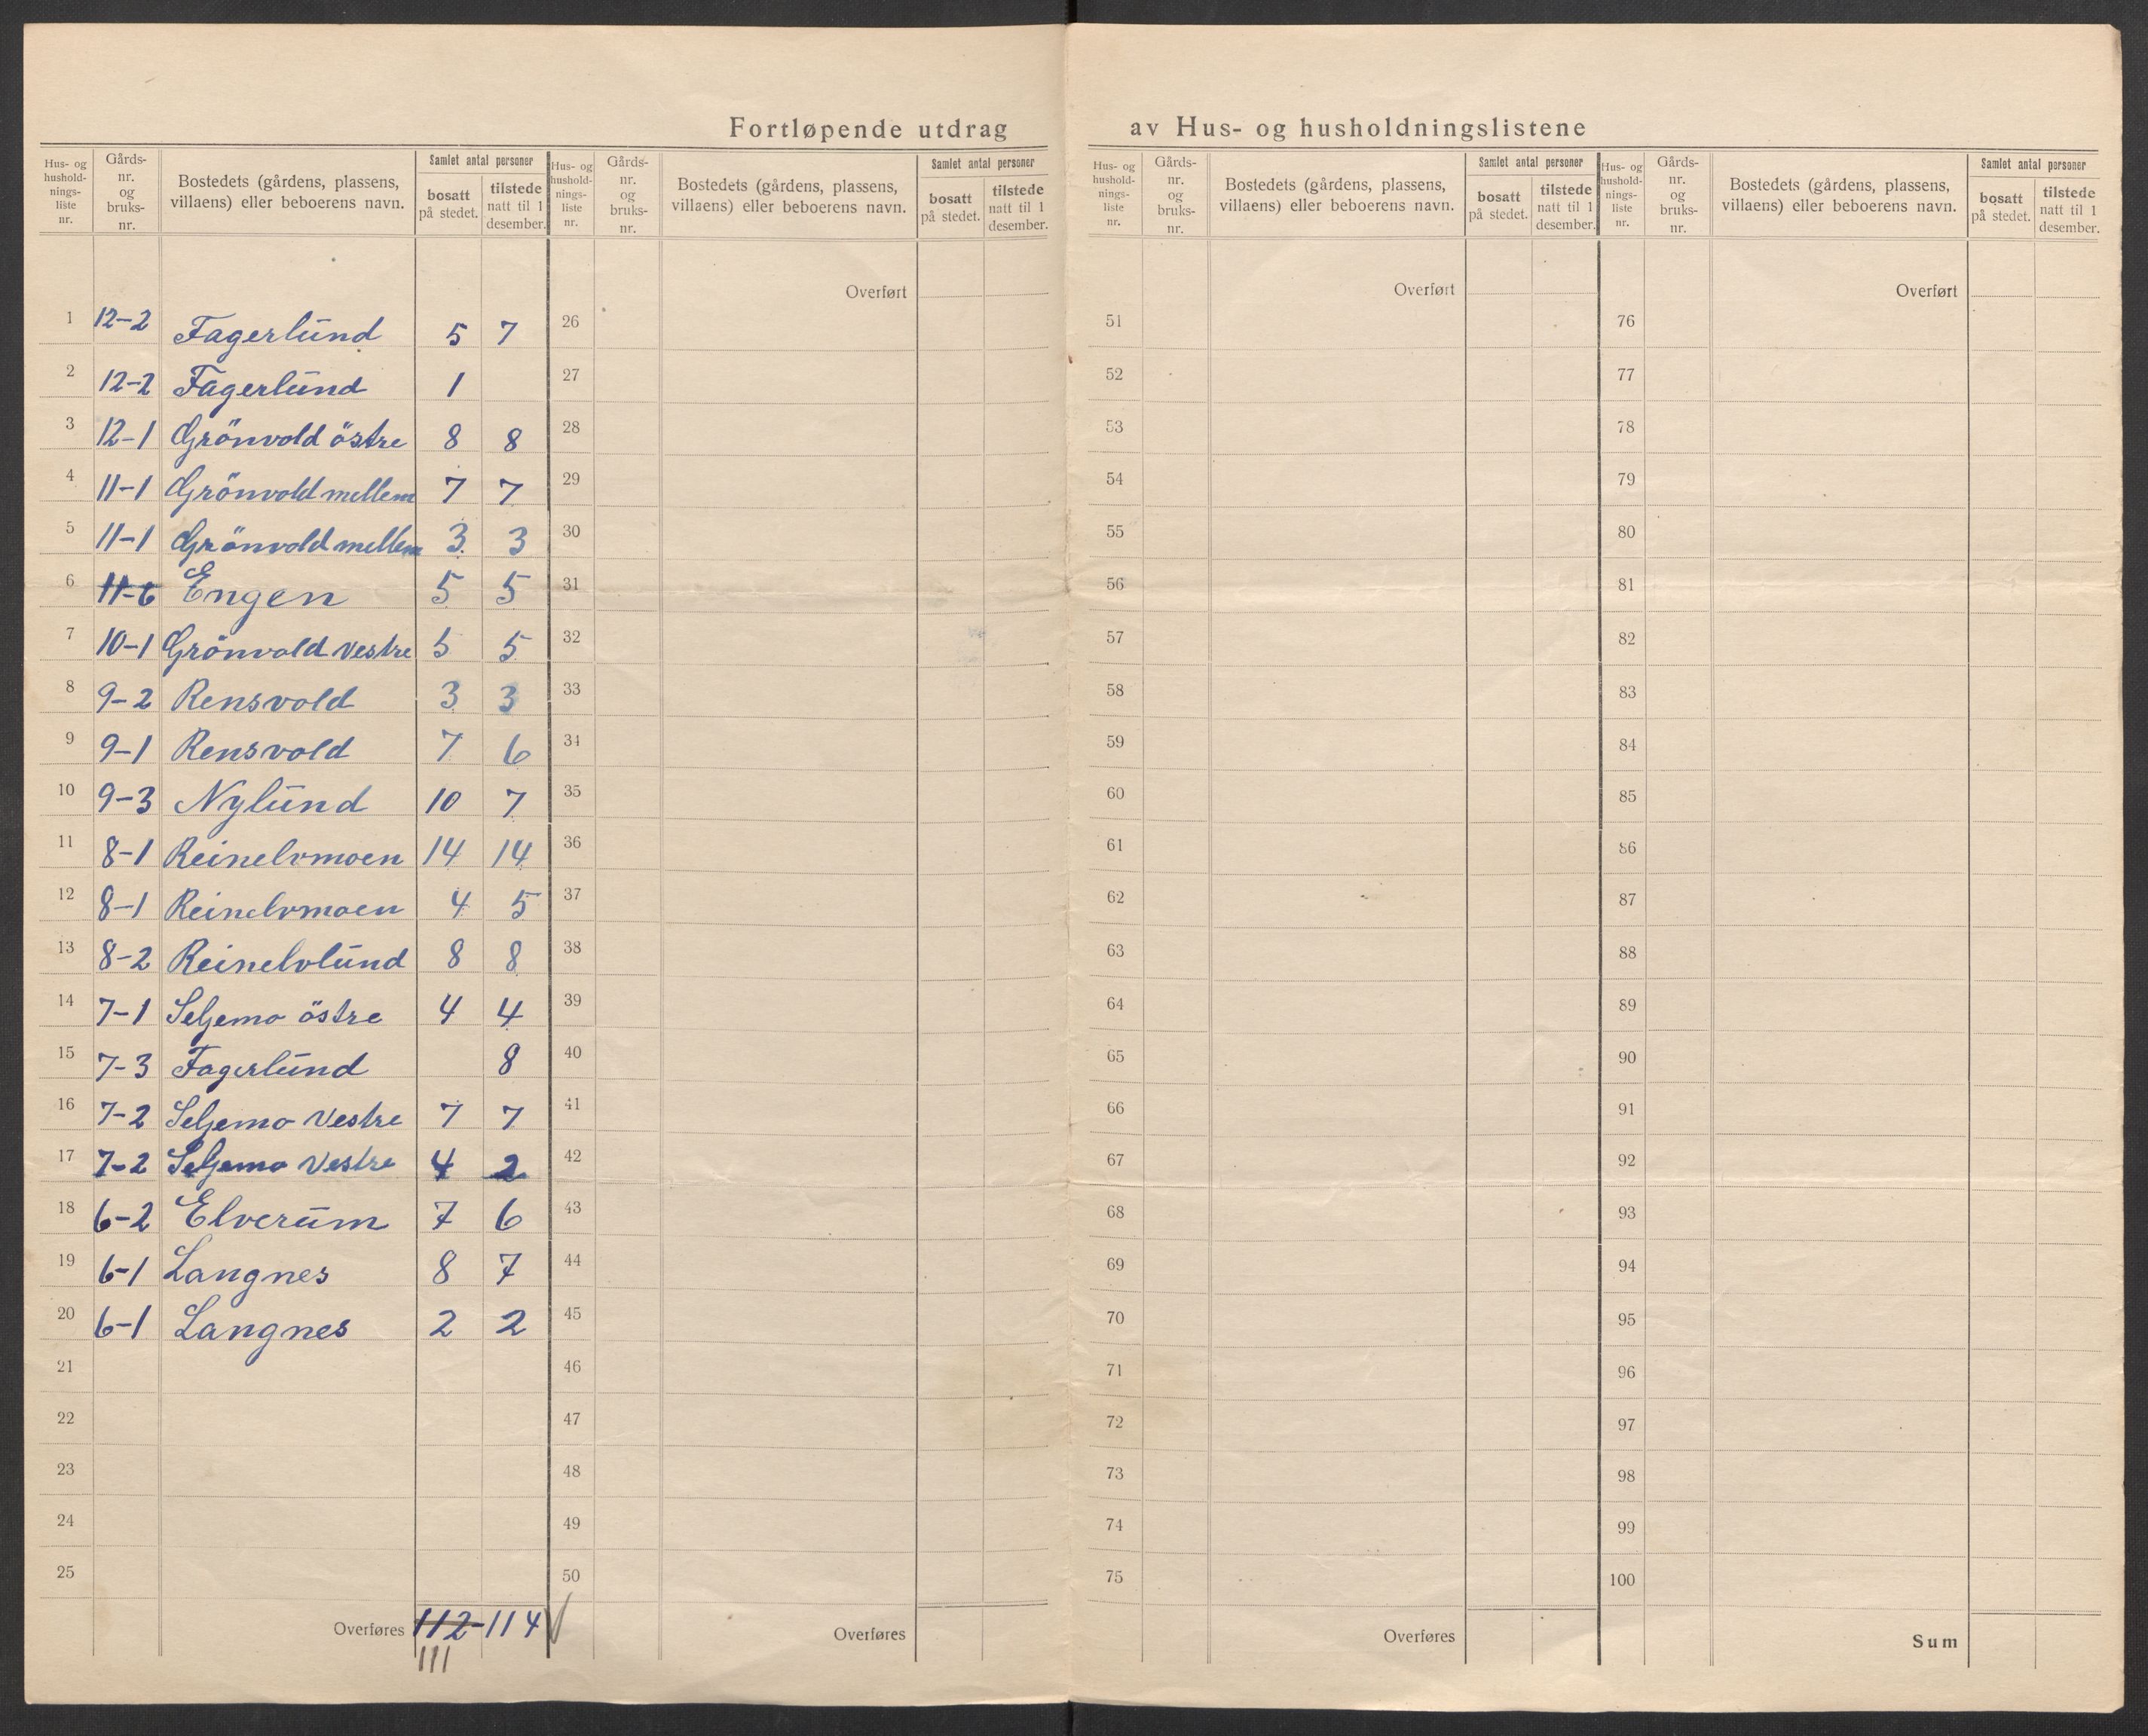 Fortløpende utdrag av Hus- og husholdningslistene
Hus- og hushold- nings- liste nr. | Gårds- nr. og bruks- nr. | Bostedets (gårdens, plassens, villaens) eller beboerens navn. | Samlet antal personer | bosatt på stedet. | tilstede natt til 1 desember.
1 12-2 Fagerlund 5 7
2 12-2 Fagerlund 1
3 12-1 Grönvold östre 8 8
4 11-1 Grönvold mellem 7 7
5 11-1 Grönvold mellem 3 3
6 11-6 Engen 5 5
7 10-1 Grönvold vestre 5 5
8 9-2 Rensvold 3 3
9 9-1 Rensvold 7 6
10 9-3 Nylund 10 7
11 8-1 Reinelvmoen 14 14
12 8-1 Reinelvmoen 4 5
13 8-2 Reinelvlund 8 8
14 7-1 Seljemo östre 4 4
15 7-3 Fagerlund 8
16 7-2 Seljemo Vestre 7 7
17 7-2 Seljemo Vestre 4 2
18 6-2 Elverum 7 6
19 6-1 Langnes 8 7
20 6-1 Langnes 2 2
21
22
23
24
25
Overføres 112-114
111
Hus- og hushold- nings- liste nr. | Gårds- nr. og bruks- nr. | Bostedets (gårdens, plassens, villaens) eller beboerens navn. | Samlet antal personer | bosatt på stedet. | tilstede natt til 1 desember.
Overført
26
27
28
29
30
31
32
33
34
35
36
37
38
39
40
41
42
43
44
45
46
47
48
49
50
Overføres
Hus- og hushold- nings- liste nr. | Gårds- nr. og bruks- nr. | Bostedets (gårdens, plassens, villaens) eller beboerens navn. | Samlet antal personer | bosatt på stedet. | tilstede natt til 1 desember.
Overført
51
52
53
54
55
56
57
58
59
60
61
62
63
64
65
66
67
68
69
70
71
72
73
74
75
Overføres
Hus- og hushold- nings- liste nr. | Gårds- nr. og bruks- nr. | Bostedets (gårdens, plassens, villaens) eller beboerens navn. | Samlet antal personer | bosatt på stedet. | tilstede natt til 1 desember.
Overført
76
77
78
79
80
81
82
83
84
85
86
87
88
89
90
91
92
93
94
95
96
97
98
99
100
Sum